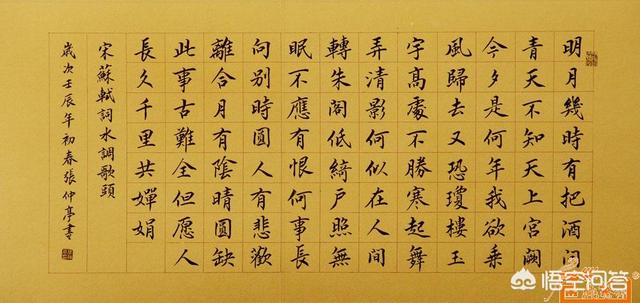 明月幾時有把酒问
青天不知天上宫阙
今夕是何年我欲乘
風歸去又恐瓊樓玉
宇高處不勝寒起舞
弄清影何似在人間
轉朱阁低綺户照無
眠不應有恨何事長
向别時圆人有悲歡
離合月有陰晴圆缺
此事古難全但愿人
長久千里共嬋娟
宋蘇軾詞水調歌頭
歲次壬辰年初春張仲亭書
悟空问答